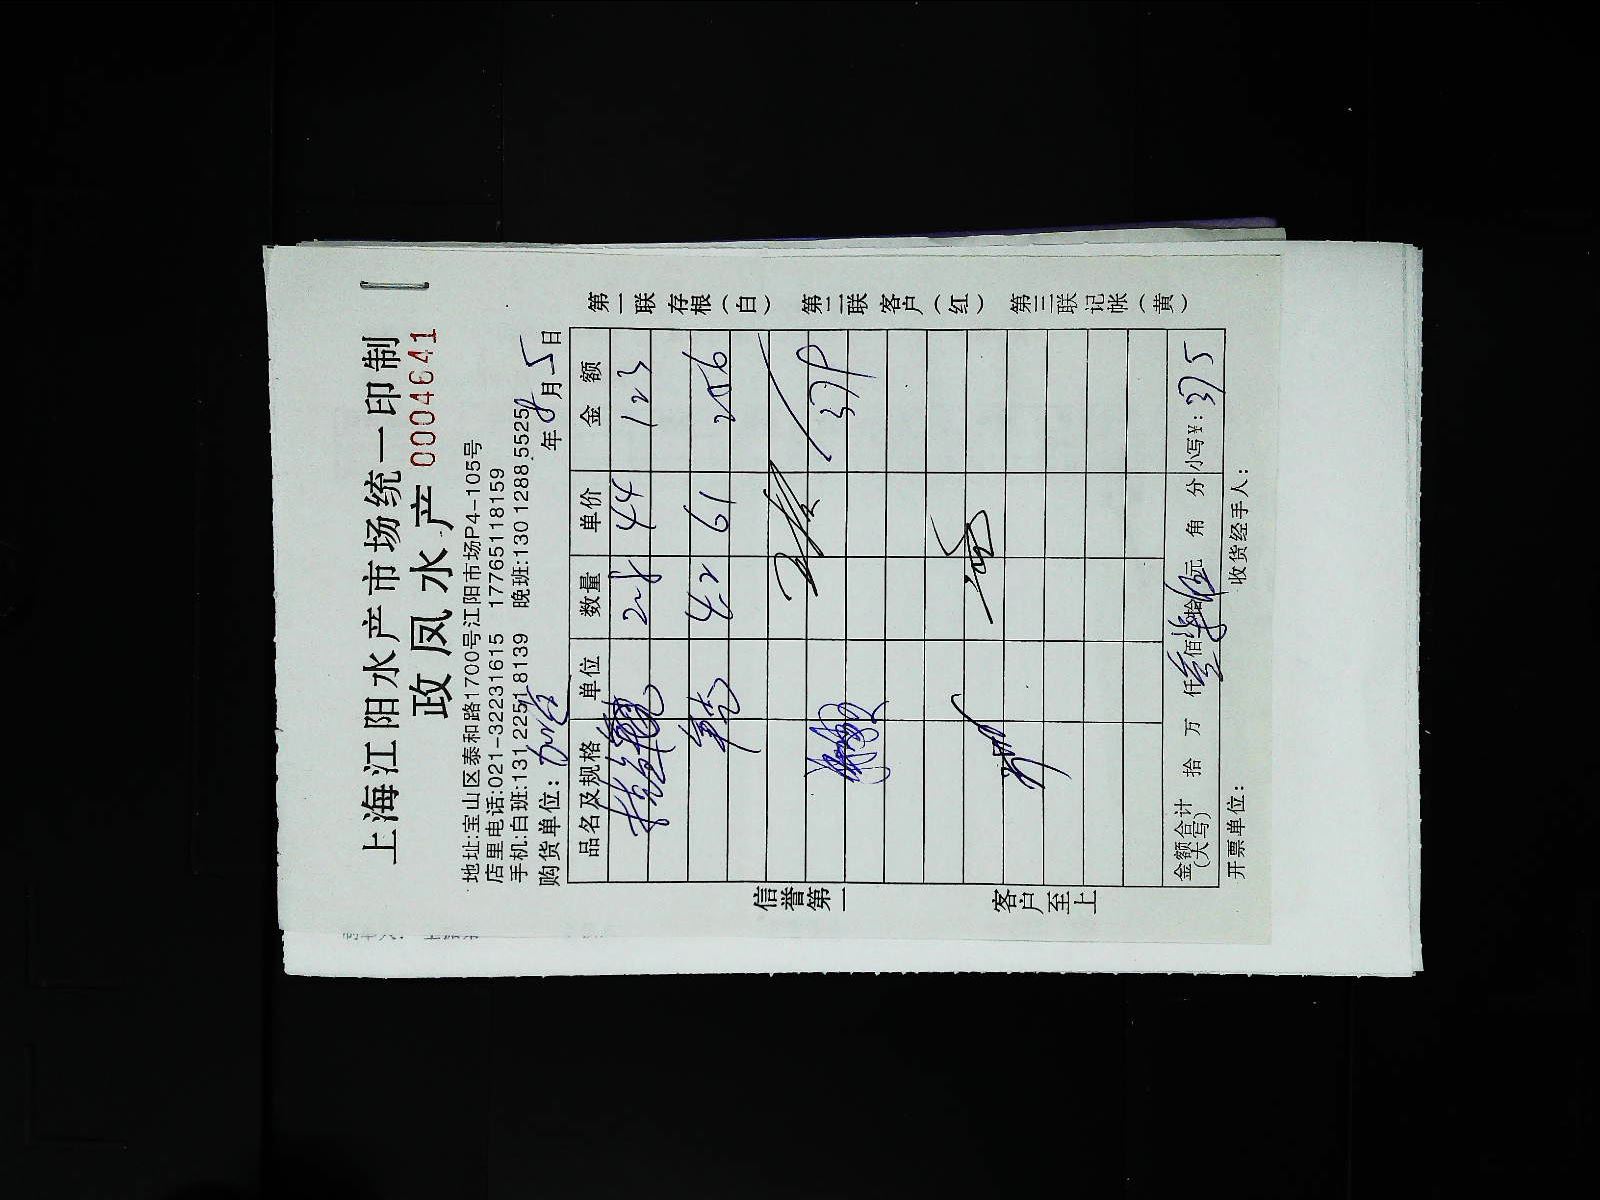 上海江阳水产市场统一印制
政凤水产 0004641
地址:宝山区泰和路1700号江阳市场P4-105号
店里电话:021-32231615 17765118159
手机:白班:131 2251 8139 晚班:130 1288 5525
购货单位: 年8月5日
品名及规格 单位 数量 单价 金额
2.8 44 123
4.2 61 256
379
金额合计(大写) 拾 万 仟叁佰柒拾伍元 角 分 小写¥: 375
开票单位: 收货经手人:
信誉第一 客户至上
第一联 存根(白) 第二联 客户(红) 第三联 记帐(黄)